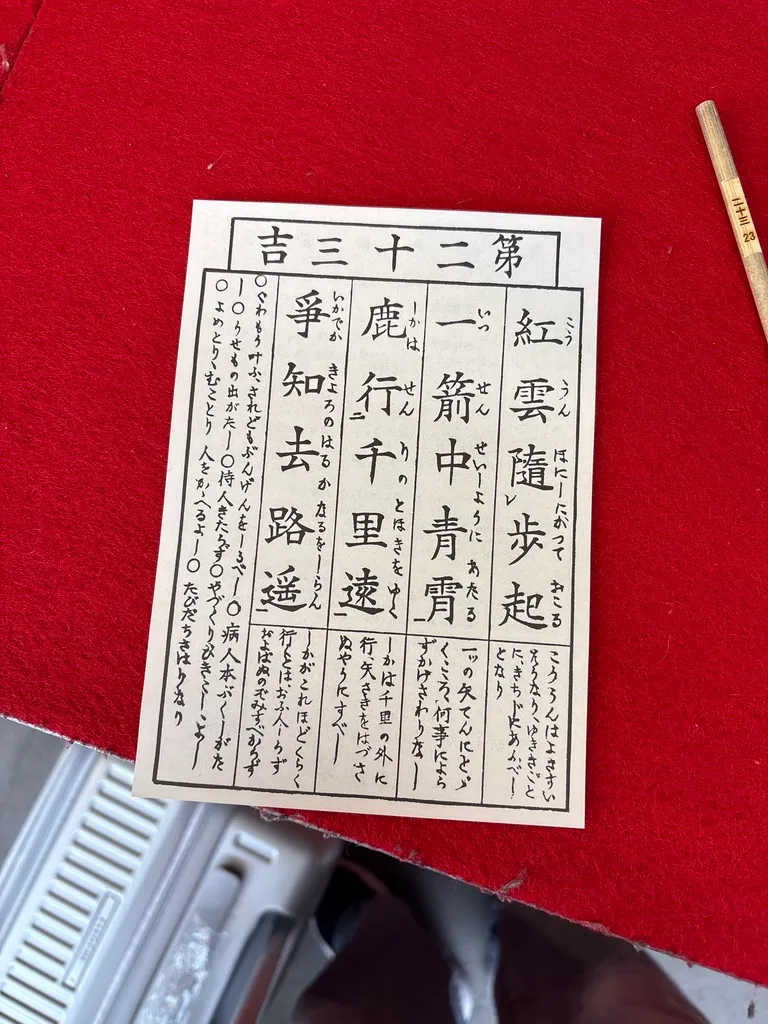 第二十三吉
紅雲隨レ歩起
こううん ほにしたがつて おこる
一箭中青霄一
いつせん せいしように あたる
鹿行二千里遠一
しかは せんりのとほきをゆく
爭知去路遥一
いかでか きよろのはるかなるをしらん
こううんはよきずい
さうなり、ゆききごと
に、きちじにあふべし
となり
一ツの矢てんにとゞ
くこころ、何事によら
ずかけさわりなし
しかは千里の外に
行、矢さきをはづさ
ぬやうにすべし
しかがこれほどくらく
行とは、おふ人しらず
およばぬのでみすべからず
〇くわもう叶ふ、されどもぶんげんをしるべし〇病人本ぶくしがた
し〇うせもの出がたし〇待人きたらず〇やづくりひきこしよし
〇よめとりむことり人をかゝへるよし〇たびだちさはりなり
二十三
23